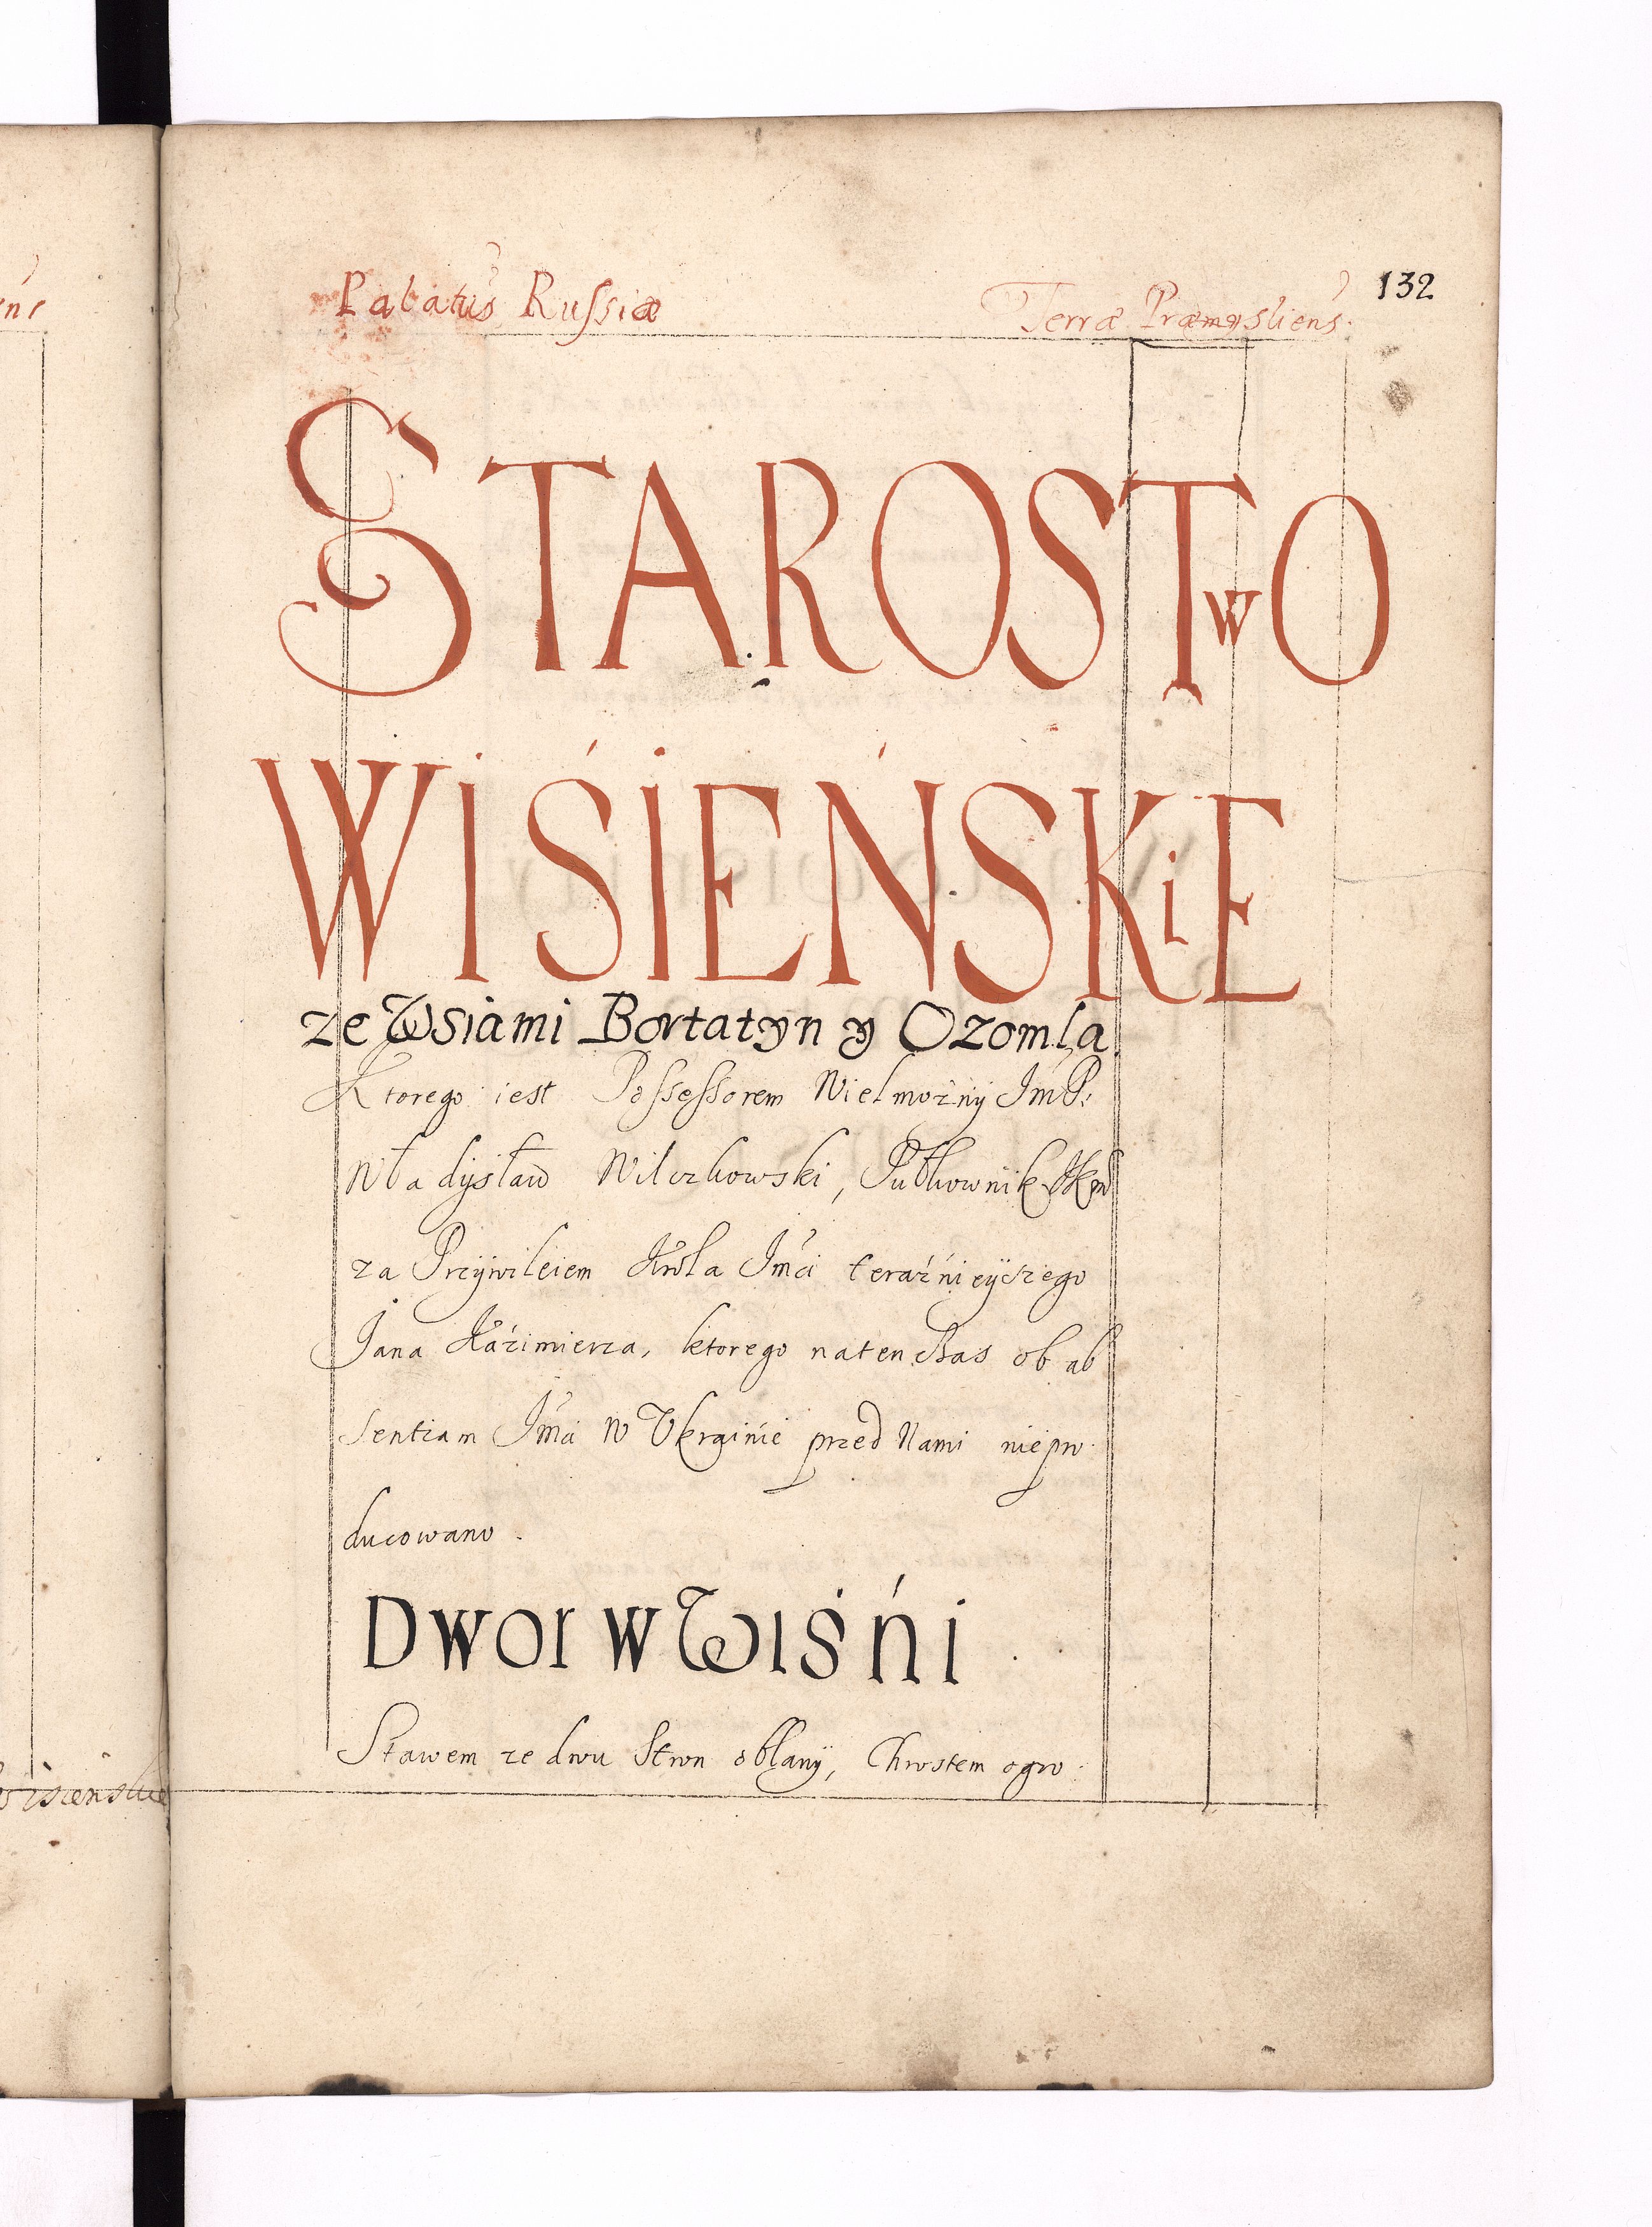 Palatus Russiæ
Terræ Præmysliens.
132
STAROSTwO
WISIEŃSKiE
ze Wsiami Bortatyn y Ozomla
Ktorego iest Possessorem Wielmożny JmP:
Władysław Wilczkowski, Pułkownik JKM
za Przywileiem Krola Jmći teraźnieyszego
Jana Kaźimierza, ktorego natenczas ob ab
sentiam Jmći W Vkrainie przed Nami niepro
ducowano.
DWOR W WIŚŃi
Stawem ze dwu Stron oblany, Chrostem ogro